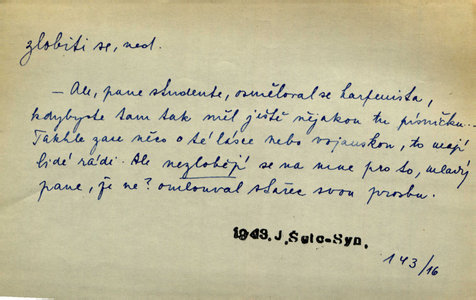 zlobiti se, ned.
— Ale, pane studente, osměloval se harfenista,
kdybyste tam tak měl ještě nějakou tu písničku..
Takhle zase něco o té lásce nebo vojanskou, to mají
lidé rádi. Ale nezlobějí se na mne pro to, mladý
pane, že ne? omlouval stařec svou prosbu.
1943. J. Šulc-Syn.
143/16